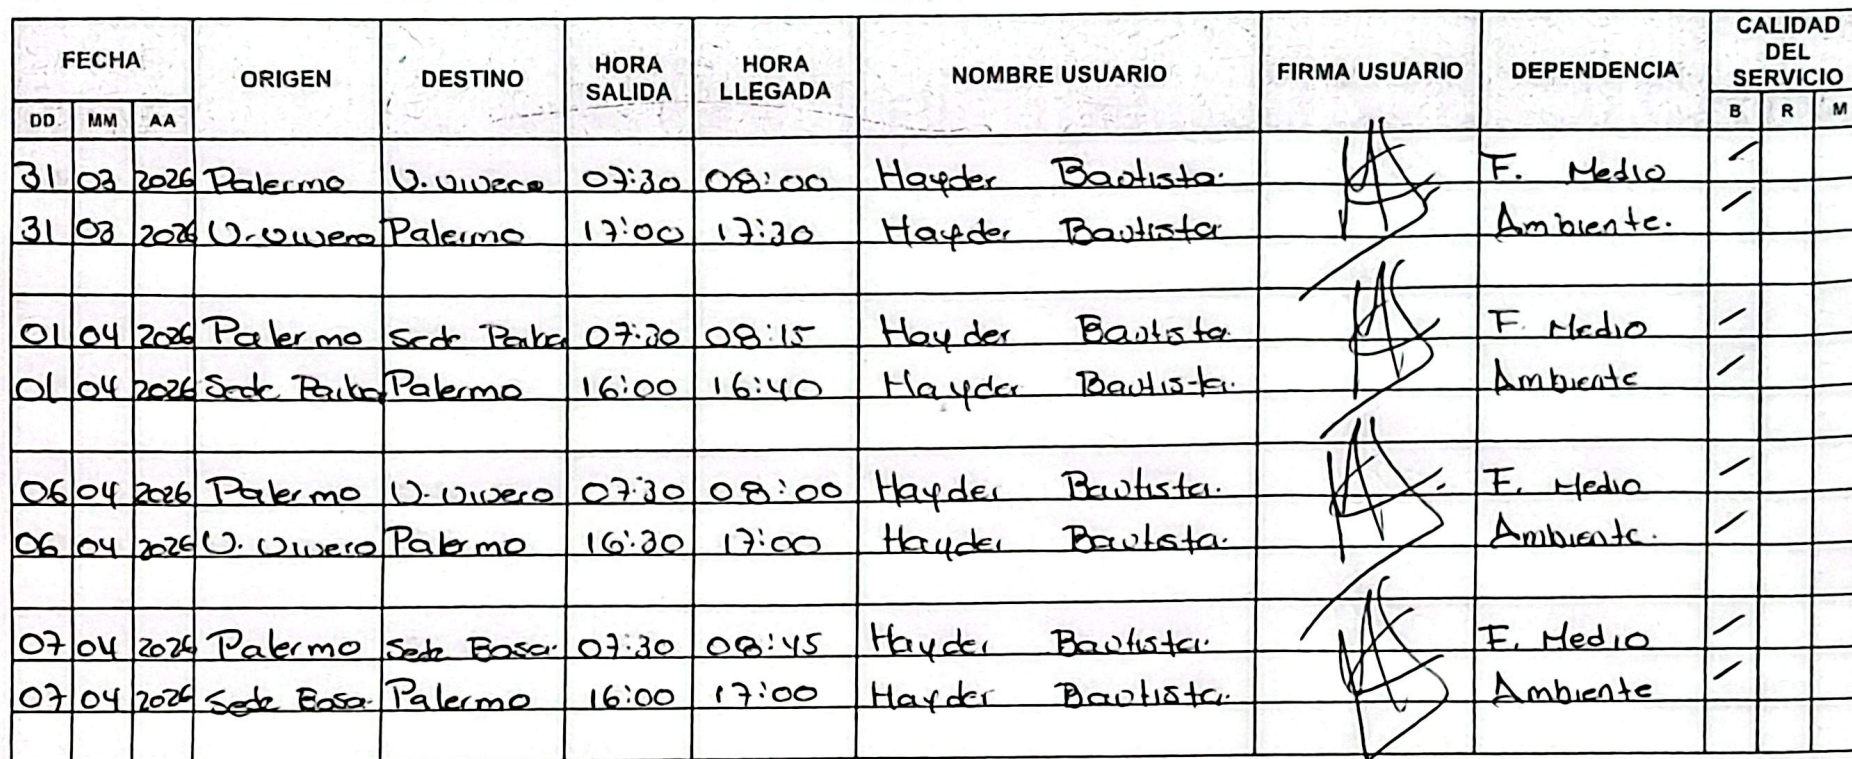 FECHA ORIGEN DESTINO HORA SALIDA HORA LLEGADA NOMBRE USUARIO FIRMA USUARIO DEPENDENCIA CALIDAD DEL SERVICIO
DD MM AA B R M
31 03 2026 Palermo U. Vivero 07:30 08:00 Hayder Bautista. F. Medio
31 03 2026 U. Vivero Palermo 17:00 17:30 Hayder Bautista Ambiente.
01 04 2026 Palermo Sede Paiba 07:30 08:15 Hayder Bautista F. Medio
01 04 2026 Sede Paiba Palermo 16:00 16:40 Hayder Bautista. Ambiente
06 04 2026 Palermo U. Vivero 07:30 08:00 Hayder Bautista. F. Medio
06 04 2026 U. Vivero Palermo 16:30 17:00 Hayder Bautista. Ambiente.
07 04 2026 Palermo Sede Bosa. 07:30 08:45 Hayder Bautista. F. Medio
07 04 2026 Sede Bosa. Palermo 16:00 17:00 Hayder Bautista. Ambiente